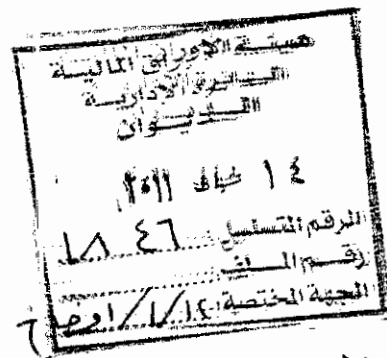 هيئة الأوراق المالية
الدائرة الإدارية
الديوان
١٤ شباط ٢٠١١
الرقم المتسلسل ١٨٤٦
رقم الملف
الجهة المختصة: